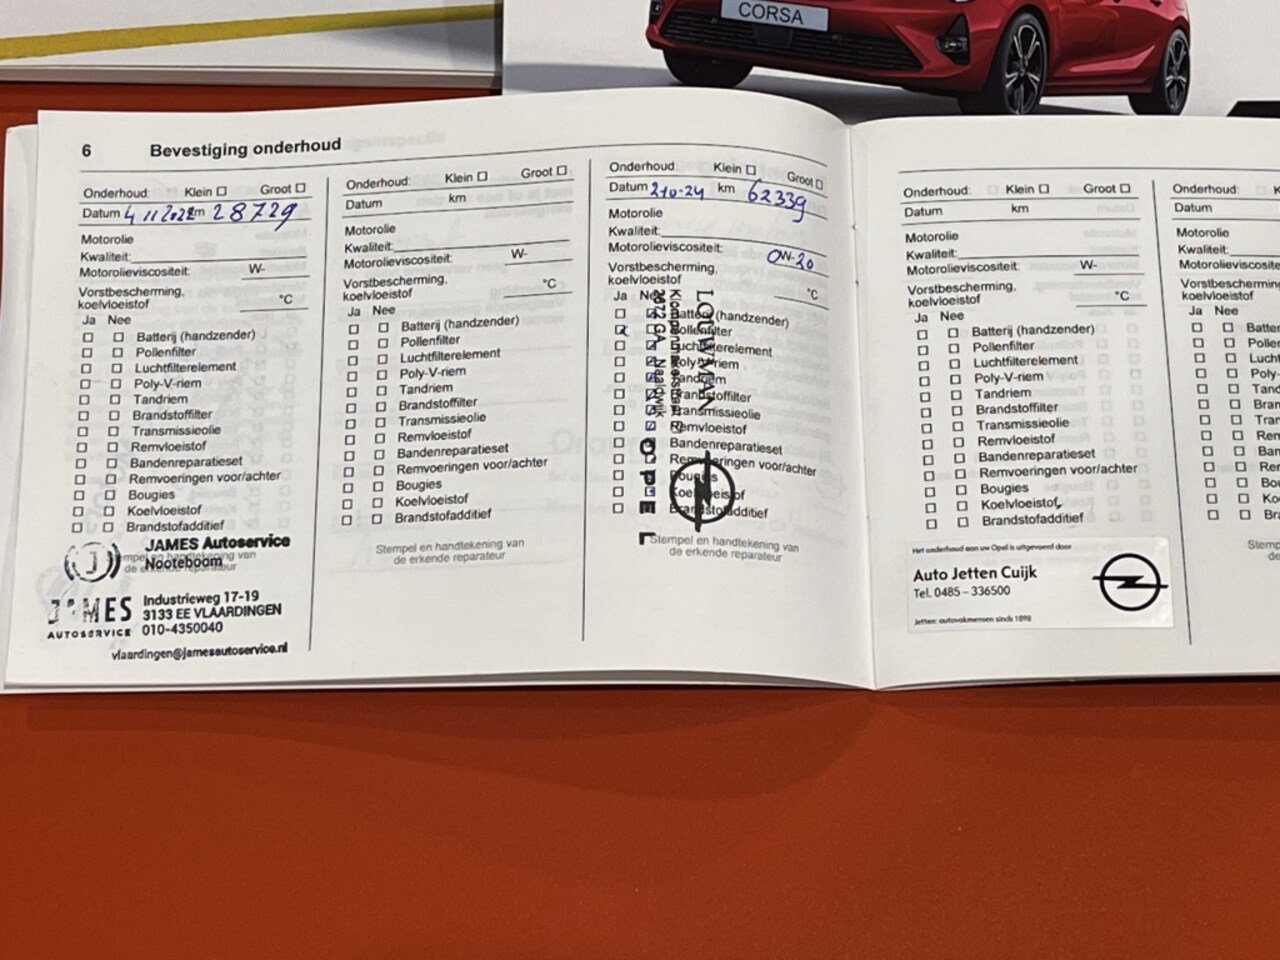 CORSA
6 Bevestiging onderhoud
Onderhoud: Klein Groot
Datum 4 11 2022 km 28729
Motorolie
Kwaliteit:
Motorolieviscositeit: W-
Vorstbescherming,
koelvloeistof °C
Ja Nee
Batterij (handzender)
Pollenfilter
Luchtfilterelement
Poly-V-riem
Tandriem
Brandstoffilter
Transmissieolie
Remvloeistof
Bandenreparatieset
Remvoeringen voor/achter
Bougies
Koelvloeistof
Brandstofadditief
JAMES Autoservice
Nooteboom
JAMES
AUTOSERVICE
Industrieweg 17-19
3133 EE VLAARDINGEN
010-4350040
vlaardingen@jamesautoservice.nl
Onderhoud: Klein Groot
Datum km
Motorolie
Kwaliteit:
Motorolieviscositeit: W-
Vorstbescherming,
koelvloeistof °C
Ja Nee
Batterij (handzender)
Pollenfilter
Luchtfilterelement
Poly-V-riem
Tandriem
Brandstoffilter
Transmissieolie
Remvloeistof
Bandenreparatieset
Remvoeringen voor/achter
Bougies
Koelvloeistof
Brandstofadditief
Stempel en handtekening van
de erkende reparateur
Onderhoud: Klein Groot
Datum 2-10-24 km 62339
Motorolie
Kwaliteit:
Motorolieviscositeit: 0W-20
Vorstbescherming,
koelvloeistof °C
Ja Nee
Batterij (handzender)
Pollenfilter
Luchtfilterelement
Poly-V-riem
Tandriem
Brandstoffilter
Transmissieolie
Remvloeistof
Bandenreparatieset
Remvoeringen voor/achter
Bougies
Koelvloeistof
Brandstofadditief
LOUWMAN
2672 GA Naaldwijk
OPEL
Stempel en handtekening van
de erkende reparateur
Onderhoud: Klein Groot
Datum km
Motorolie
Kwaliteit:
Motorolieviscositeit: W-
Vorstbescherming,
koelvloeistof °C
Ja Nee
Batterij (handzender)
Pollenfilter
Luchtfilterelement
Poly-V-riem
Tandriem
Brandstoffilter
Transmissieolie
Remvloeistof
Bandenreparatieset
Remvoeringen voor/achter
Bougies
Koelvloeistof
Brandstofadditief
Het onderhoud aan uw Opel is uitgevoerd door
Auto Jetten Cuijk
Tel. 0485 - 336500
Jetten: autovakmensen sinds 1898
Onderhoud:
Datum
Motorolie
Kwaliteit:
Vorstbescherming,
koelvloeistof
Ja Nee